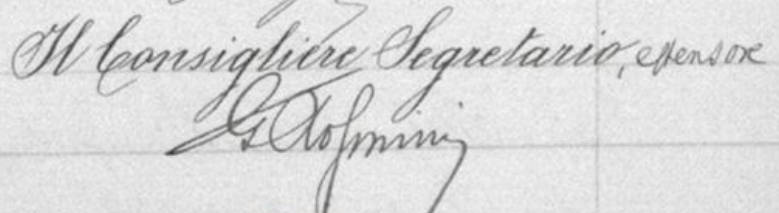 Il Consigliere Segretario, estensore
G Rosmini